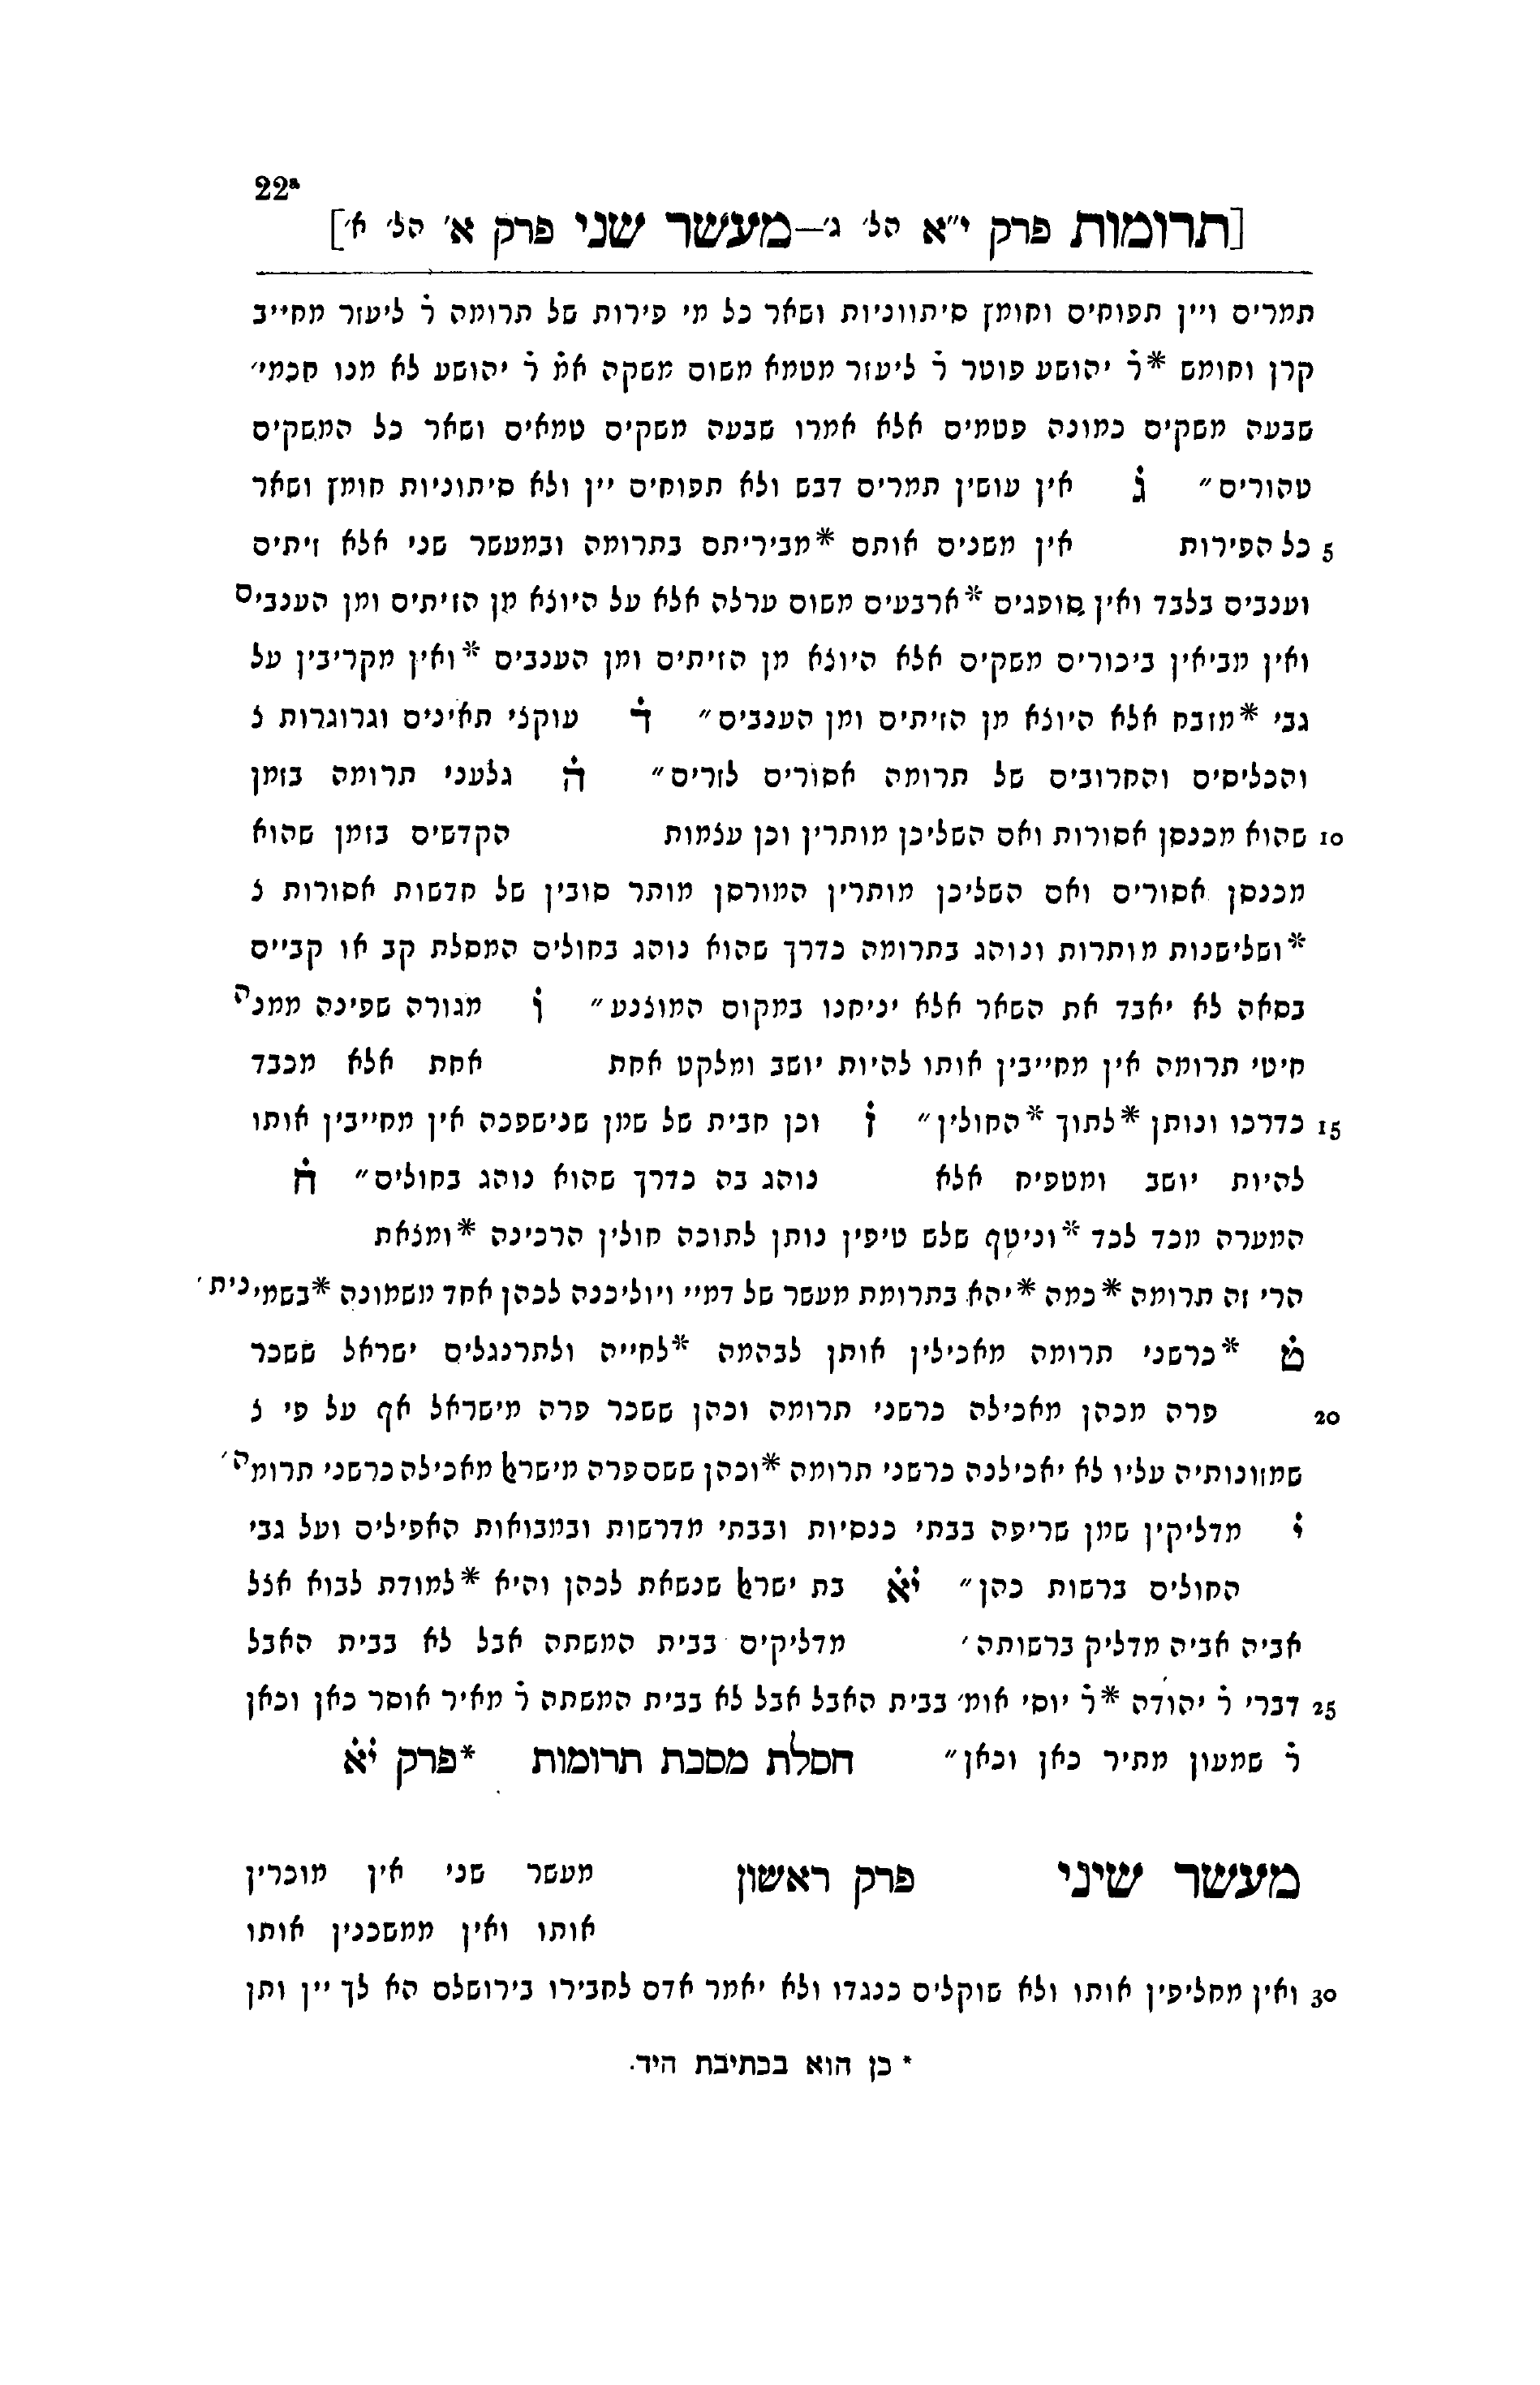 22ᵃ
[תרומות פרק י״א הל׳ ג׳—מעשר שני פרק א׳ הל׳ א׳]
תמרים ויין תפוחים וחומץ סיתווניות ושאר כל מי פירות של תרומה ר̇ ליעזר מחייב
קרן וחומש *ר̇ יהושע פוטר ר̇ ליעזר מטמא משום משקה אמ̇ ר̇ יהושע לא מנו חכמי׳
שבעה משקים כמונה פטמים אלא אמרו שבעה משקים טמאים ושאר כל המשקים
טהורים״ ג̇ אין עושין תמרים דבש ולא תפוחים יין ולא סיתוניות חומץ ושאר
5 כל הפירות אין משנים אותם *מבריתם בתרומה ובמעשר שני אלא זיתים
וענבים בלבד ואין סופגים *ארבעים משום ערלה אלא על היוצא מן הזיתים ומן הענבים
ואין מביאין ביכורים משקים אלא היוצא מן הזיתים ומן הענבים *ואין מקריבין על
גבי *מזבח אלא היוצא מן הזיתים ומן הענבים״ ד̇ עוקצי תאינים וגרוגרות צ
והכליסים והחרובים של תרומה אסורים לזרים״ ה̇ גלעני תרומה בזמן
10 שהוא מכנסן אסורות ואם השליכן מותרין וכן עצמות הקדשים בזמן שהוא
מכנסן אסורים ואם השליכן מותרין המורסן מותר סובין של חדשות אסורות צ
*ושלישנות מותרות ונוהג בתרומה כדרך שהוא נוהג בחולים המסלת קב או קביים
בסאה לא יאבד את השאר אלא יניחנו במקום המוצנע״ ו̇ מגורה שפינה ממנה
חיטי תרומה אין מחייבין אותו להיות יושב ומלקט אחת אחת אלא מכבד
15 כדרכו ונותן *לתוך *החולין״ ז̇ וכן חבית של שמן שנישפכה אין מחייבין אותו
להיות יושב ומטפיח אלא נוהג בה כדרך שהוא נוהג בחולים״ ח̇
המערה מכד לכד *וניטף שלש טיפין נותן לתוכה חולין הרכינה *ומצאת
הרי זה תרומה *כמה *יהא בתרומת מעשר של דמיי ויוליכנה לכהן אחד משמונה *בשמינית׳
ט̇ *כרשני תרומה מאכילין אותן לבהמה *לחייה ולתרנגלים ישראל ששכר
20 פרה מכהן מאכילה כרשני תרומה וכהן ששכר פרה מישראל אף על פי צ
שמזונותיה עליו לא יאכילנה כרשני תרומה *וכהן ששם פרה מישרﭏ מאכילה כרשני תרומה׳
י̇ מדליקין שמן שריפה בבתי כנסיות ובבתי מדרשות ובמבואות האפילים ועל גבי
החולים ברשות כהן״ יא̇ בת ישרﭏ שנשאת לכהן והיא *למודת לבוא אצל
אביה אביה מדליק ברשותה׳ מדליקים בבית המשתה אבל לא בבית האבל
25 דברי ר̇ יהודה *ר̇ יוסי אומ׳ בבית האבל אבל לא בבית המשתה ר̇ מאיר אוסר כאן וכאן
ר̇ שמעון מתיר כאן וכאן״ חסלת מסכת תרומות *פרק יא̇
מעשר שיני פרק ראשון מעשר שני אין מוכרין
אותו ואין ממשכנין אותו
30 ואין מחליפין אותו ולא שוקלים כנגדו ולא יאמר אדם לחבירו בירושלם הא לך יין ותן
* כן הוא בכתיבת היד.